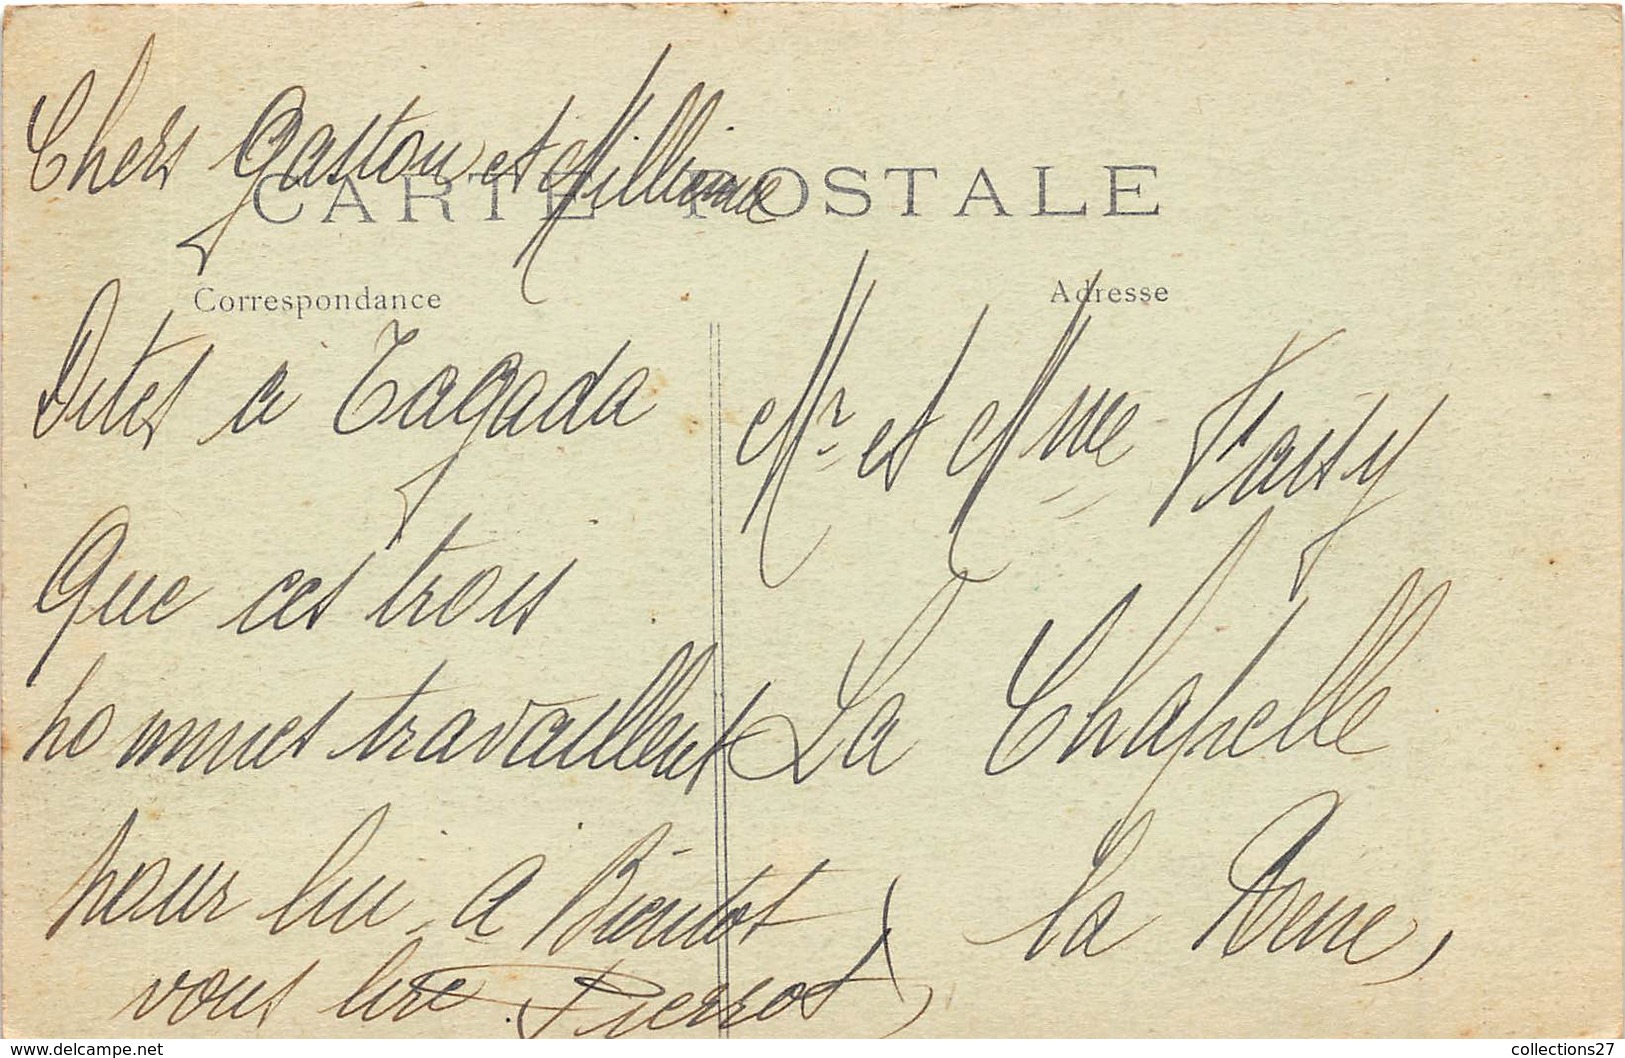 CARTE POSTALE
Correspondance
Chers Gaston et
Dites a Tagada
Que ces trois
hommes travaillent
pour lui a Bientot
vous lire Pierrot
Adresse
Mr et Mme
La Chapelle
la Reine
www.delcampe.net
collections27